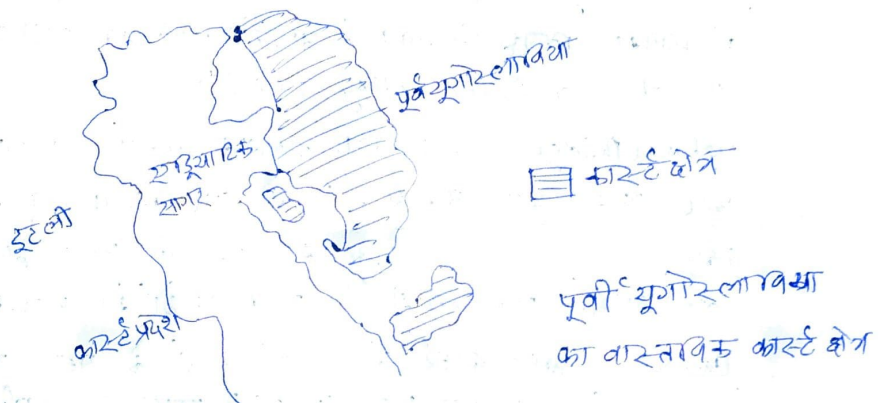 पूर्व यूगोस्लाविया
एड्रियाटिक
सागर
इटली
कार्स्ट प्रदेश
कार्स्ट क्षेत्र
पूर्वी यूगोस्लाविया
का वास्तविक कार्स्ट क्षेत्र